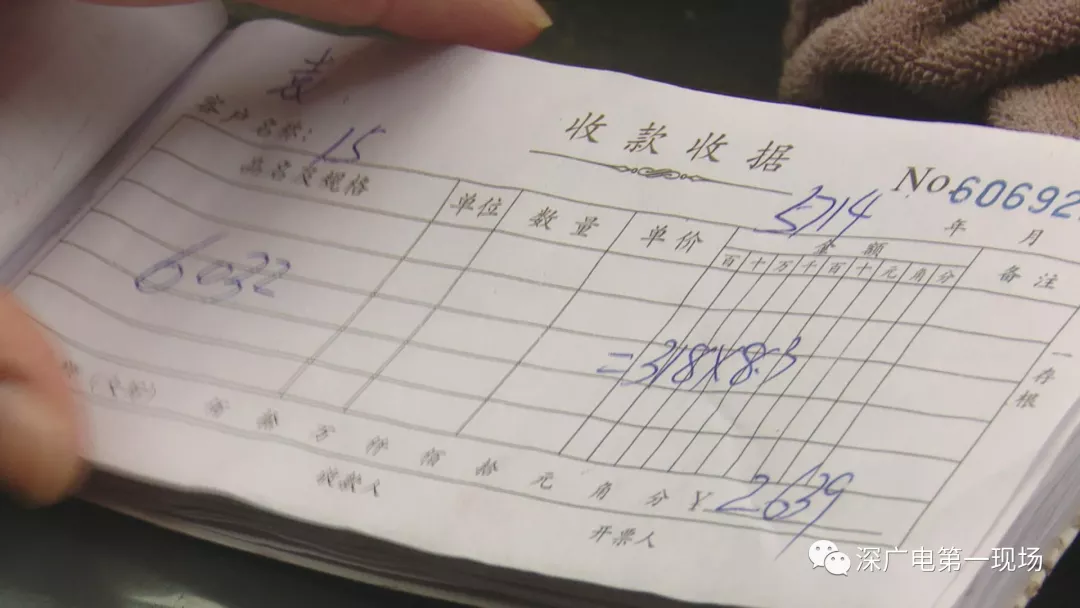 收款收据
No 60692
客户名称: 15
5714 年 月
品名及规格 单位 数量 单价 金额 备注
百 十 万 千 百 十 元 角 分
6032
=318×8.3
一存根
万 仟 佰 拾 元 角 分 ¥ 2639
收款人
开票人
深广电第一现场